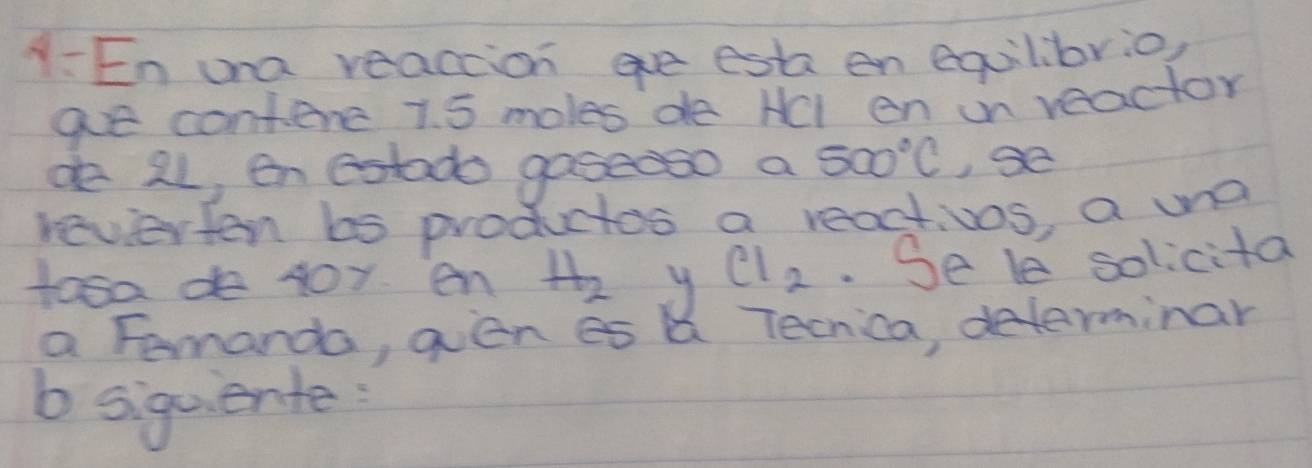 1:- En una reacción que esta en equilibrio,
que contiene 7.5 moles de HCl en un reactor
de 2L, en estado gaseoso a 500°C, se
revierten los productos a reactivos, a una
tasa de 40% en H2 y Cl2. Se le solicita
a Fernanda, quien es la Tecnica, determinar
lo siguiente: